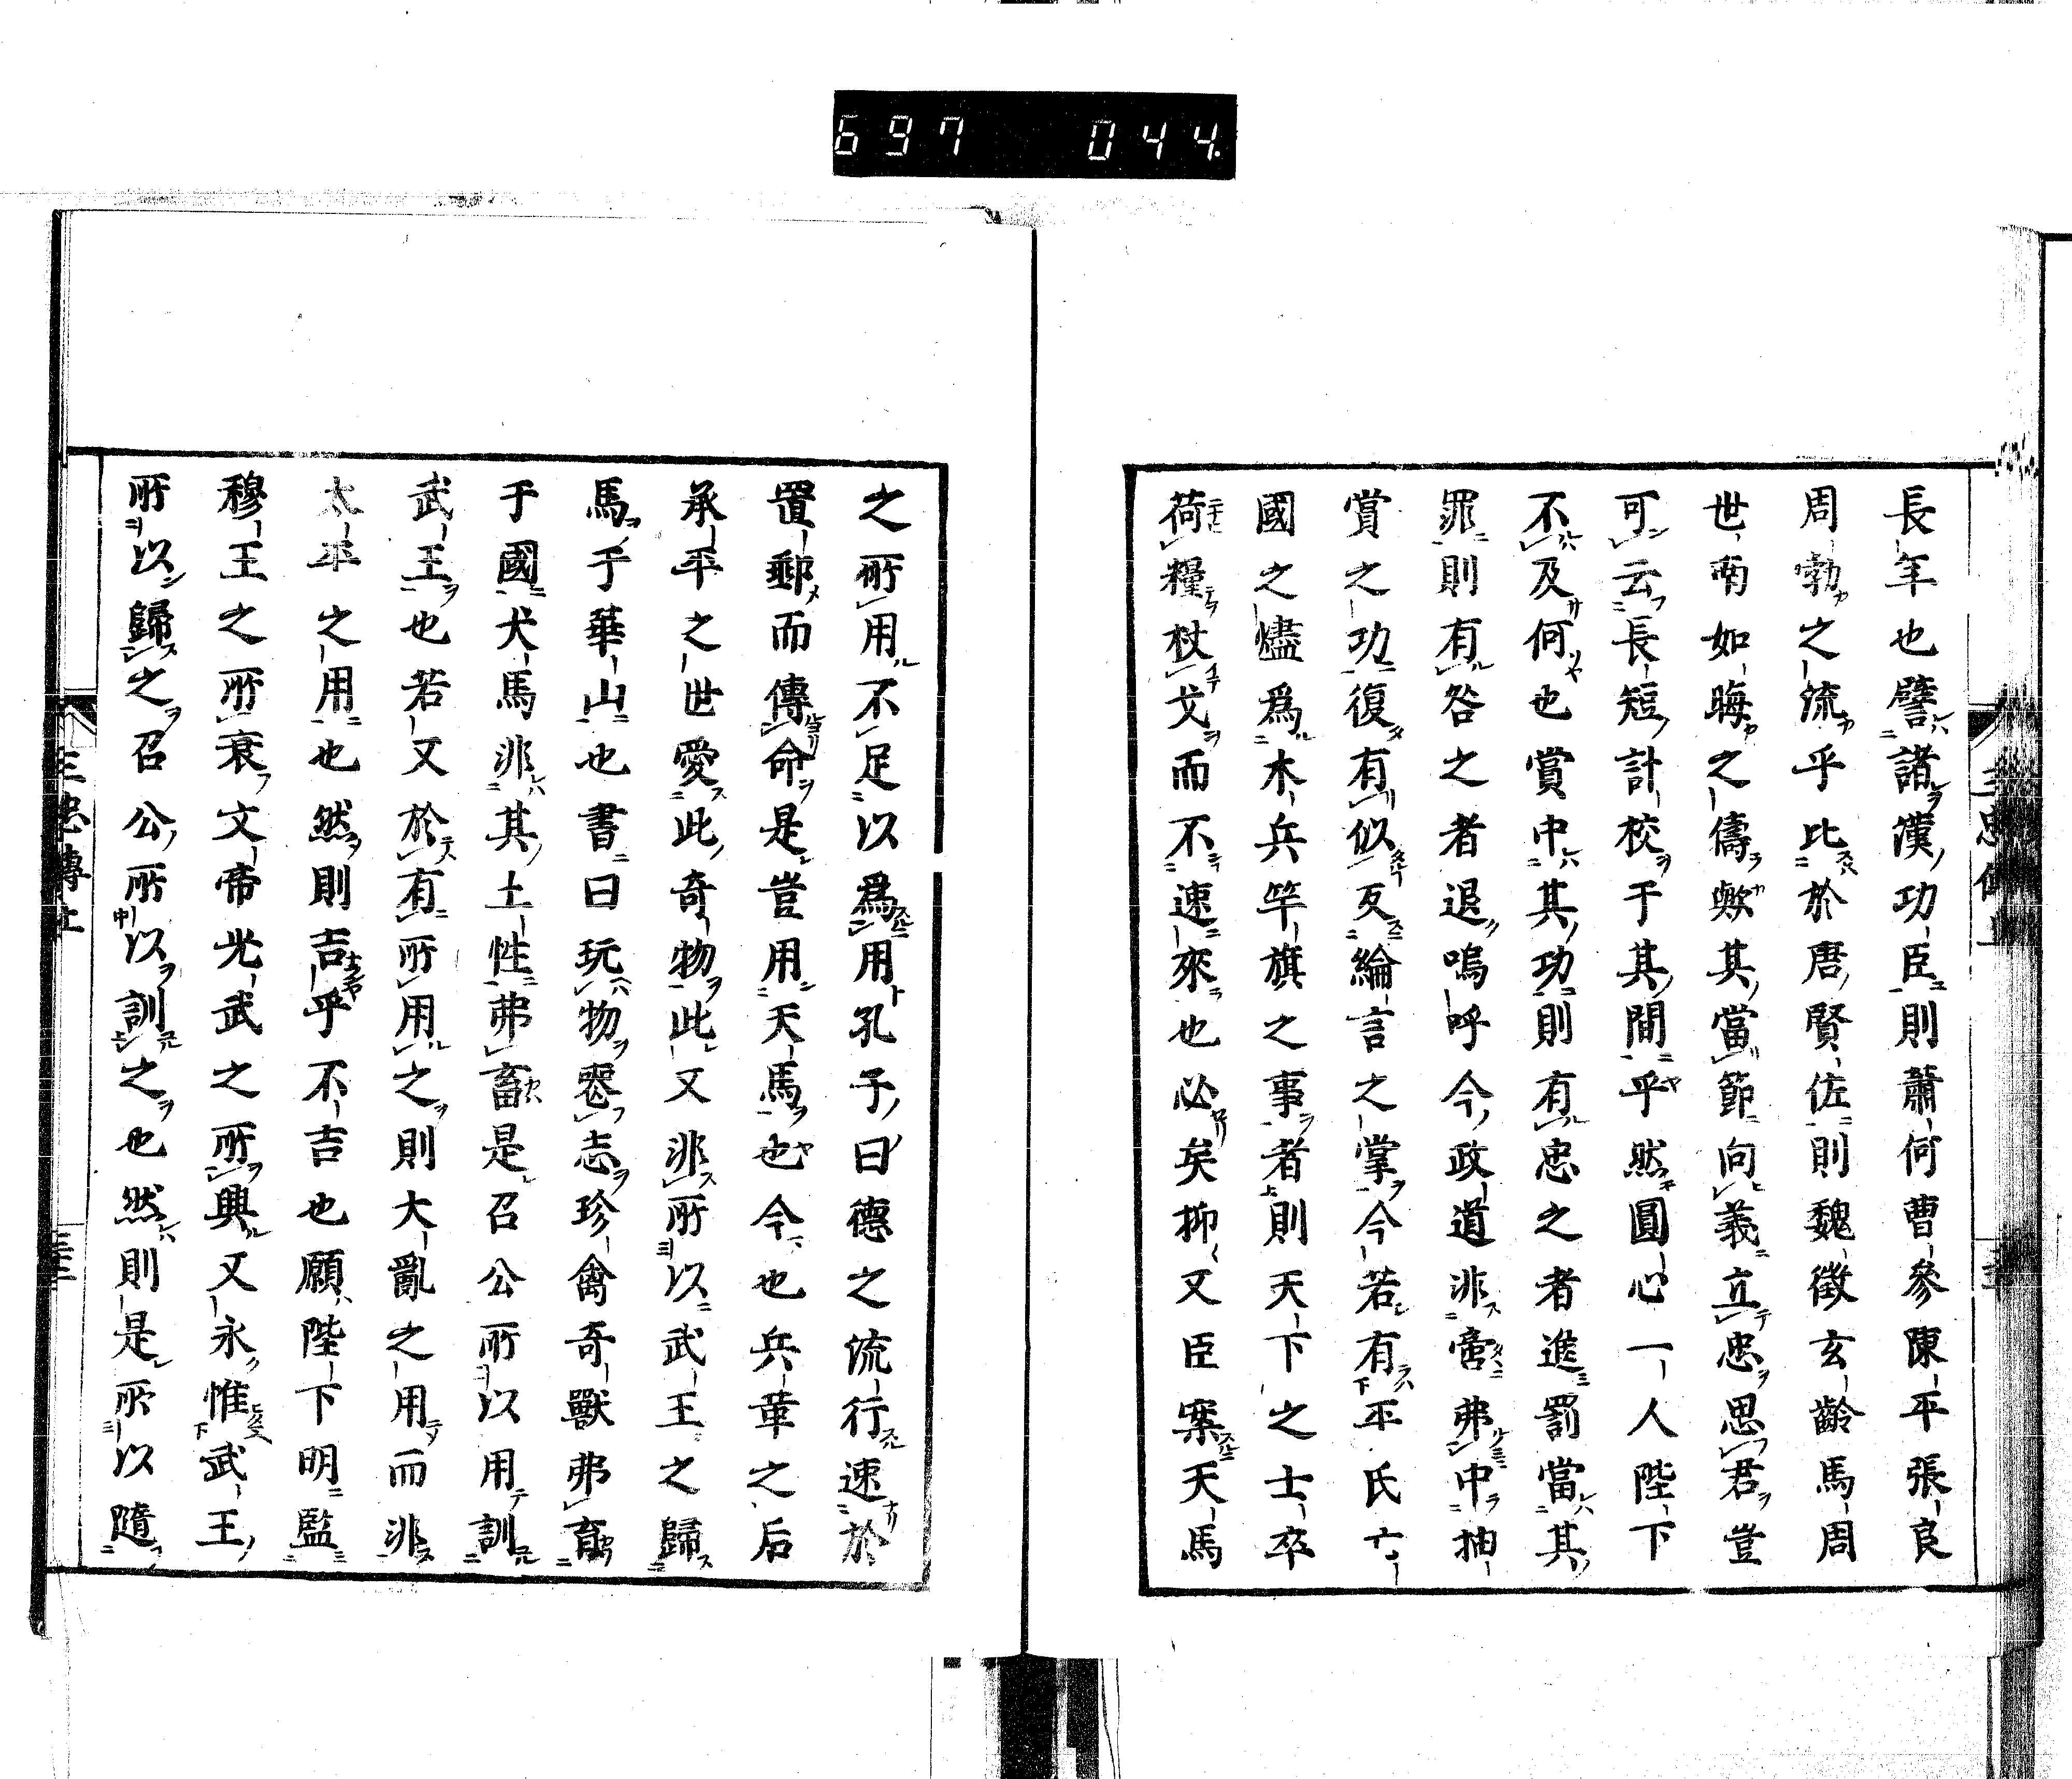 697 044
長年也譬諸漢功臣則蕭何曹參陳平張良
周勃之流乎比於唐賢佐則魏徵玄齡馬周
世南如晦之儔歟其當節向義立忠思君豈
可云長短計校于其間乎然圓心一人陛下
不及何也賞中其功則有忠之者進罰當其
罪則有咎之者退嗚呼今政道非啻弗中抽
賞之功復有似反綸言之掌今若有平氏亡
國之燼爲木兵竿旗之事者則天下之士卒
荷糧杖戈而不速來也必矣抑又臣案天馬
之所用不足以爲用孔子曰德之流行速於
置郵而傳命是豈用天馬也今也兵革之后
承平之世愛此奇物此又非所以武王之歸
馬于華山也書曰玩物喪志珍禽奇獸弗育
于國犬馬非其土性弗畜是召公所以用訓
武王也若又於有所用之則大亂之用而非
太平之用也然則吉乎不吉也願陛下明監
穆王之所衰文帝光武之所興又永惟武王
所以歸之召公所以訓之也然則是所以隨
三忠傳上